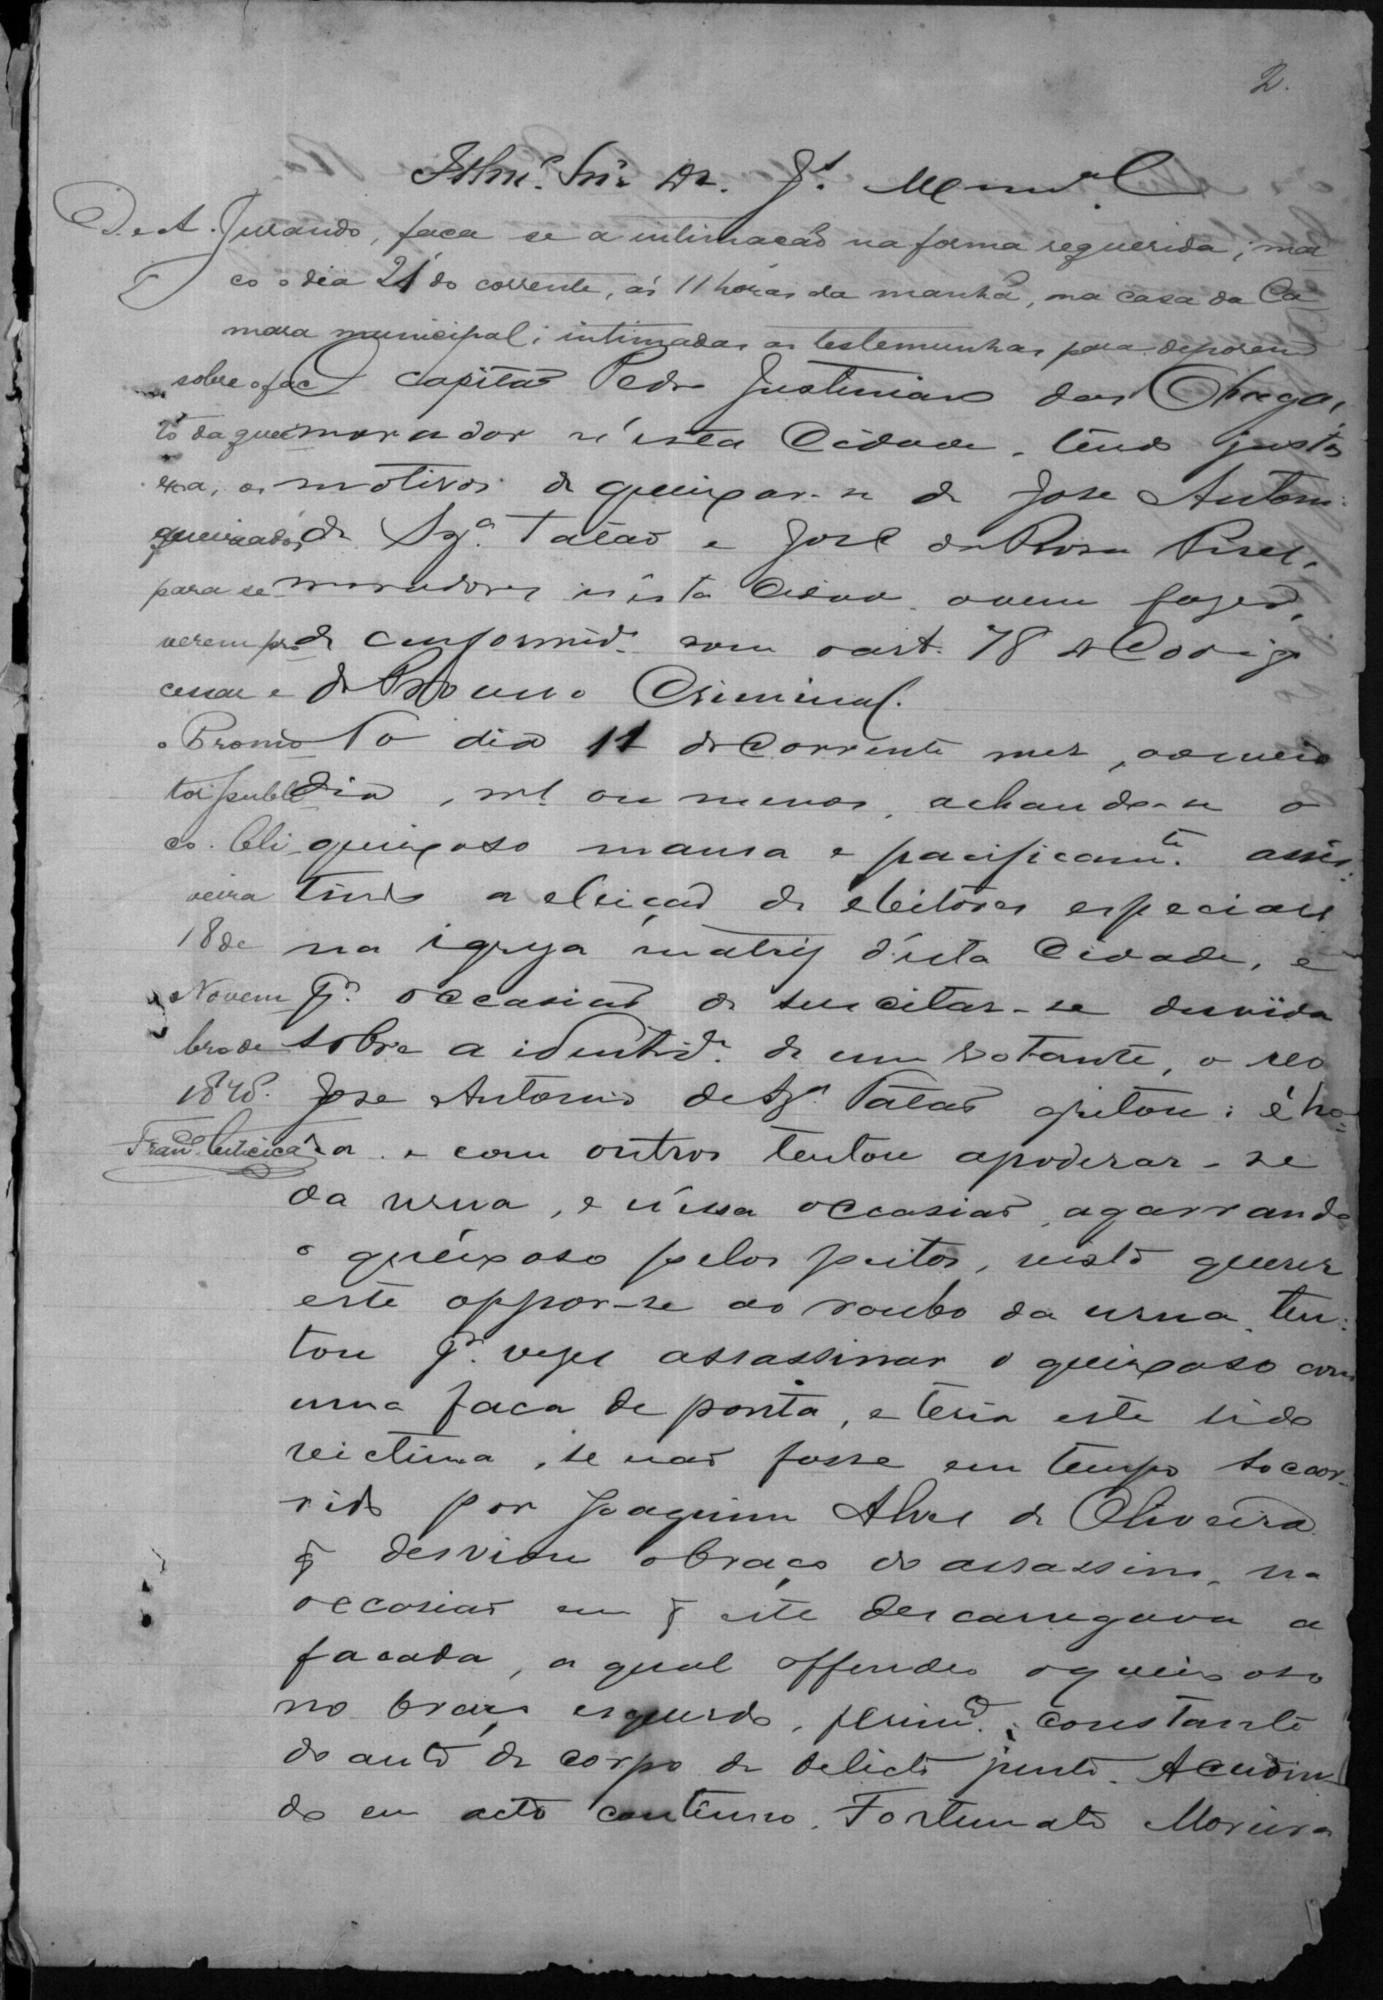 2.
Illmo. Snr. Dr. Js. Munal.
D. e A. Jurando, faça se a intimação na forma requerida; mar
co o dia 21 do corrente, ás 11 horas da manhã, na casa da Ca
mara municipal; intimadas as testemunhas para deporem
sobre o fac
to da quei
xa, os
queixados
para se
verem pro
cessar e
o Promo
tor publi
co. Oli
veira
18 de
Novem
bro de
1848.
O capitão Pedro Justiniano das Chagas,
morador n'esta Cidade, tendo justos
motivos de queixar-se de Jose Antoni
de Sza. Tatão e José da Rosa Pires,
moradores n'esta Cidade, o vem fazer,
de conformide. com o art. 78 do Codigo
do Processo Criminal.
No dia 11 do Corrente mez, ao meio
dia, ms. ou menos, achando-se o
queixoso mansa e pacificamte. assis-
tindo a eleição de eleitores especiaes
na igreja matriz d'esta Cidade, e
pr. occasião de suscitar-se duvida
sobre a identide. de um votante, o reo
Jose Antonio de Sza. Tatão gritou: é ho-
ra. e com outros tentou apoderar-se
da urna, e n'essa occasião, agarrando
o queixoso pelos peitos, visto querer
este oppor-se ao roubo da urna, ten-
tou pr. vezes assassinar o queixoso com
uma faca de ponta, e teria este sido
victima, se não fosse em tempo soccor-
rido por Joaquim Alves de Oliveira
q desviou o braço do assassino, na
occasião em q este descarregava a
facada, a qual offendeo o queixoso
no braço esquerdo, ferimto. constante
do auto de corpo de delicto junto. Acudin
do em acto continuo, Fortunato Moreira